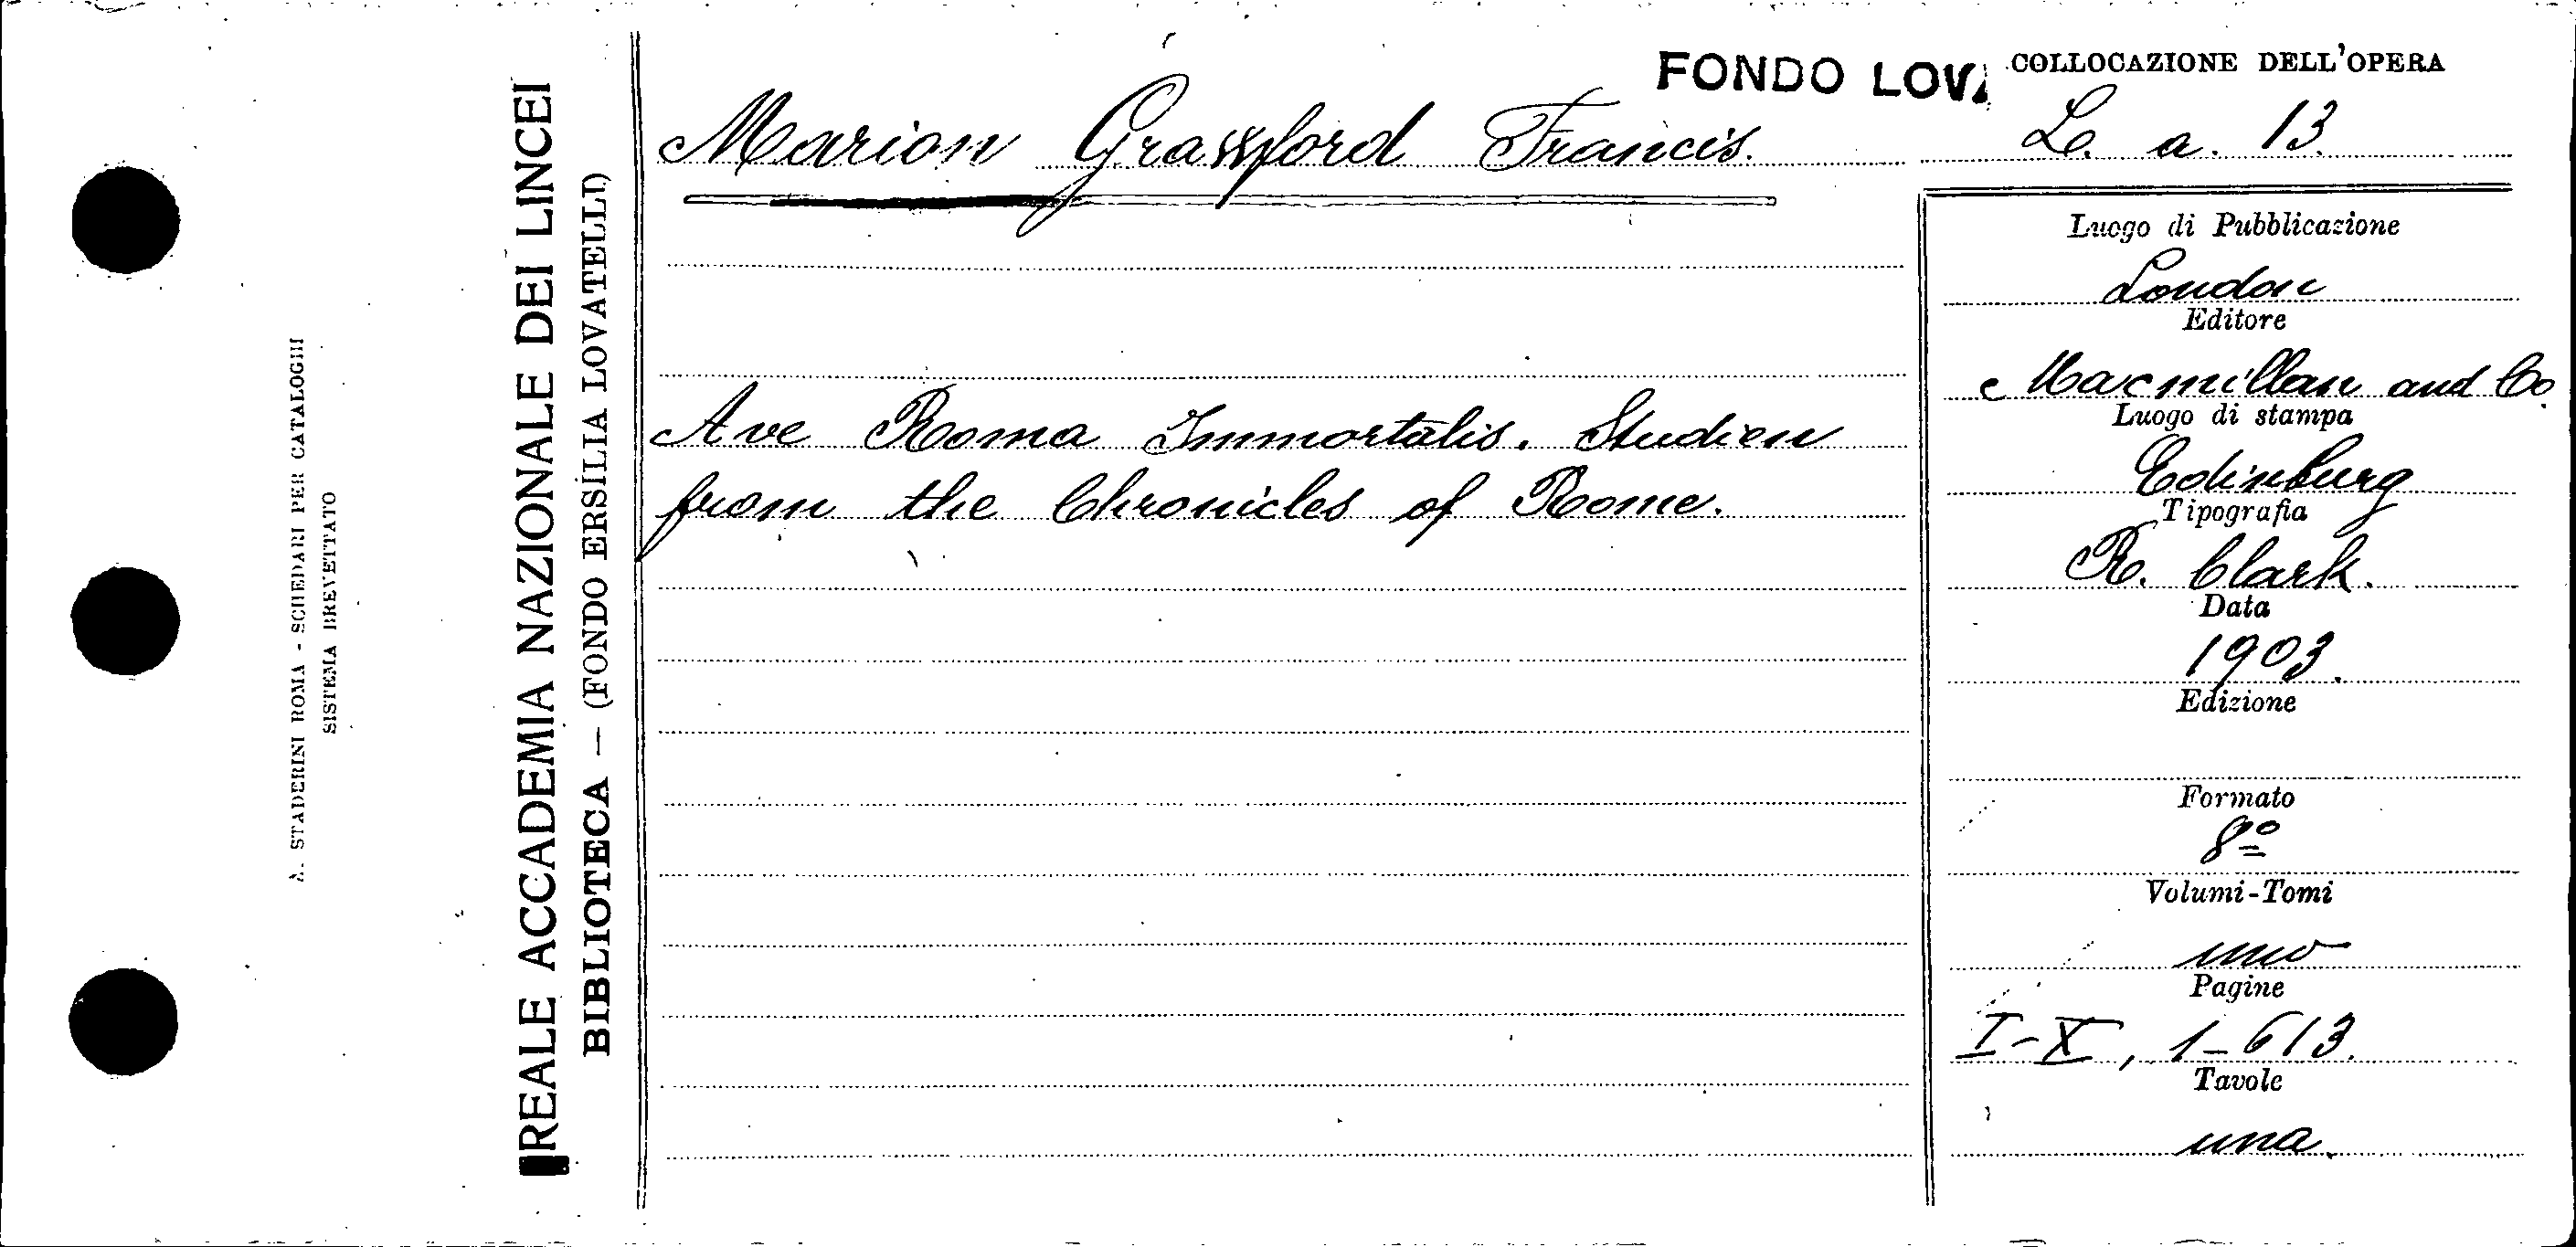 A. STADERINI ROMA - SCHEDARI PER CATALOGHI
SISTEMA BREVETTATO
REALE ACCADEMIA NAZIONALE DEI LINCEI
BIBLIOTECA — (FONDO ERSILIA LOVATELLI)
FONDO LOVA
COLLOCAZIONE DELL'OPERA
L. a. 13.
Marion Francis.
Ave Roma Immortalis. Studien
from the Chronicles of Rome.
Luogo di Pubblicazione
London
Editore
Macmillan and Co.
Luogo di stampa
Edinburg
Tipografia
R. Clark.
Data
1903.
Edizione
Formato
8º
Volumi-Tomi
uno
Pagine
I-X, 1-613.
Tavole
una.